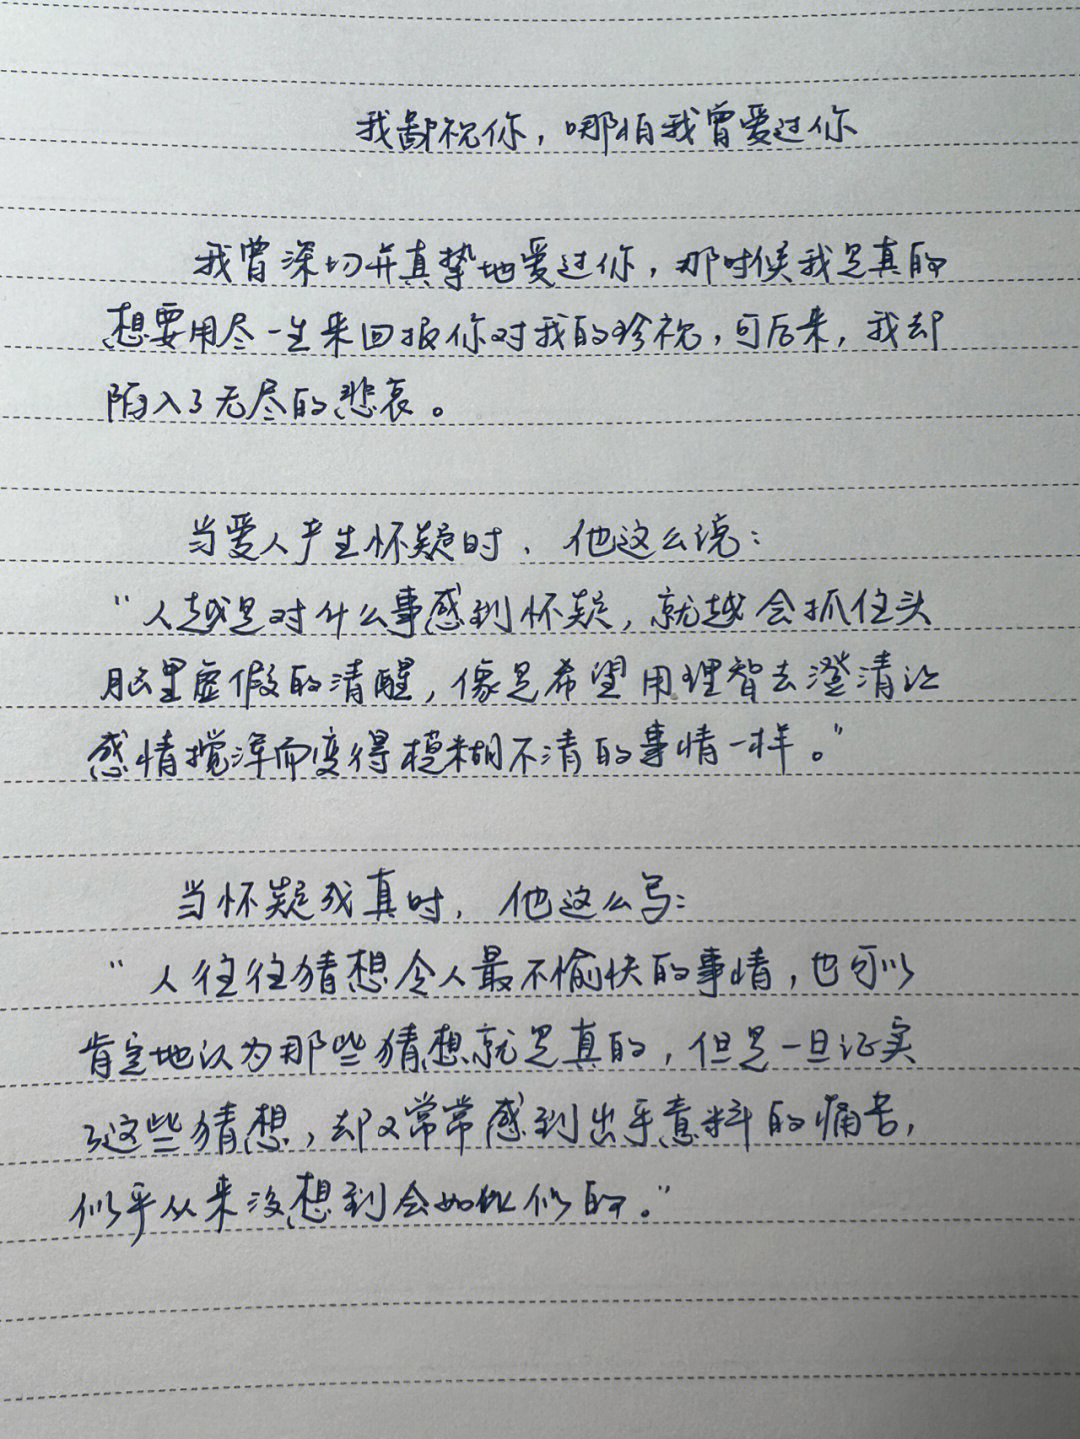 我鄙视你，哪怕我曾爱过你
我曾深切并真挚地爱过你，那时候我是真的
想要用尽一生来回报你对我的珍视，可后来，我却
陷入了无尽的悲哀。
当爱人产生怀疑时，他这么说：
“人越是对什么事感到怀疑，就越会抓住头
脑里虚假的清醒，像是希望用理智去澄清让
感情搅浑而变得模糊不清的事情一样。”
当怀疑成真时，他这么写：
“人往往猜想令人最不愉快的事情，也可以
肯定地认为那些猜想就是真的，但是一旦证实
了这些猜想，却又常常感到出乎意料的痛苦，
似乎从来没想到会如此似的。”